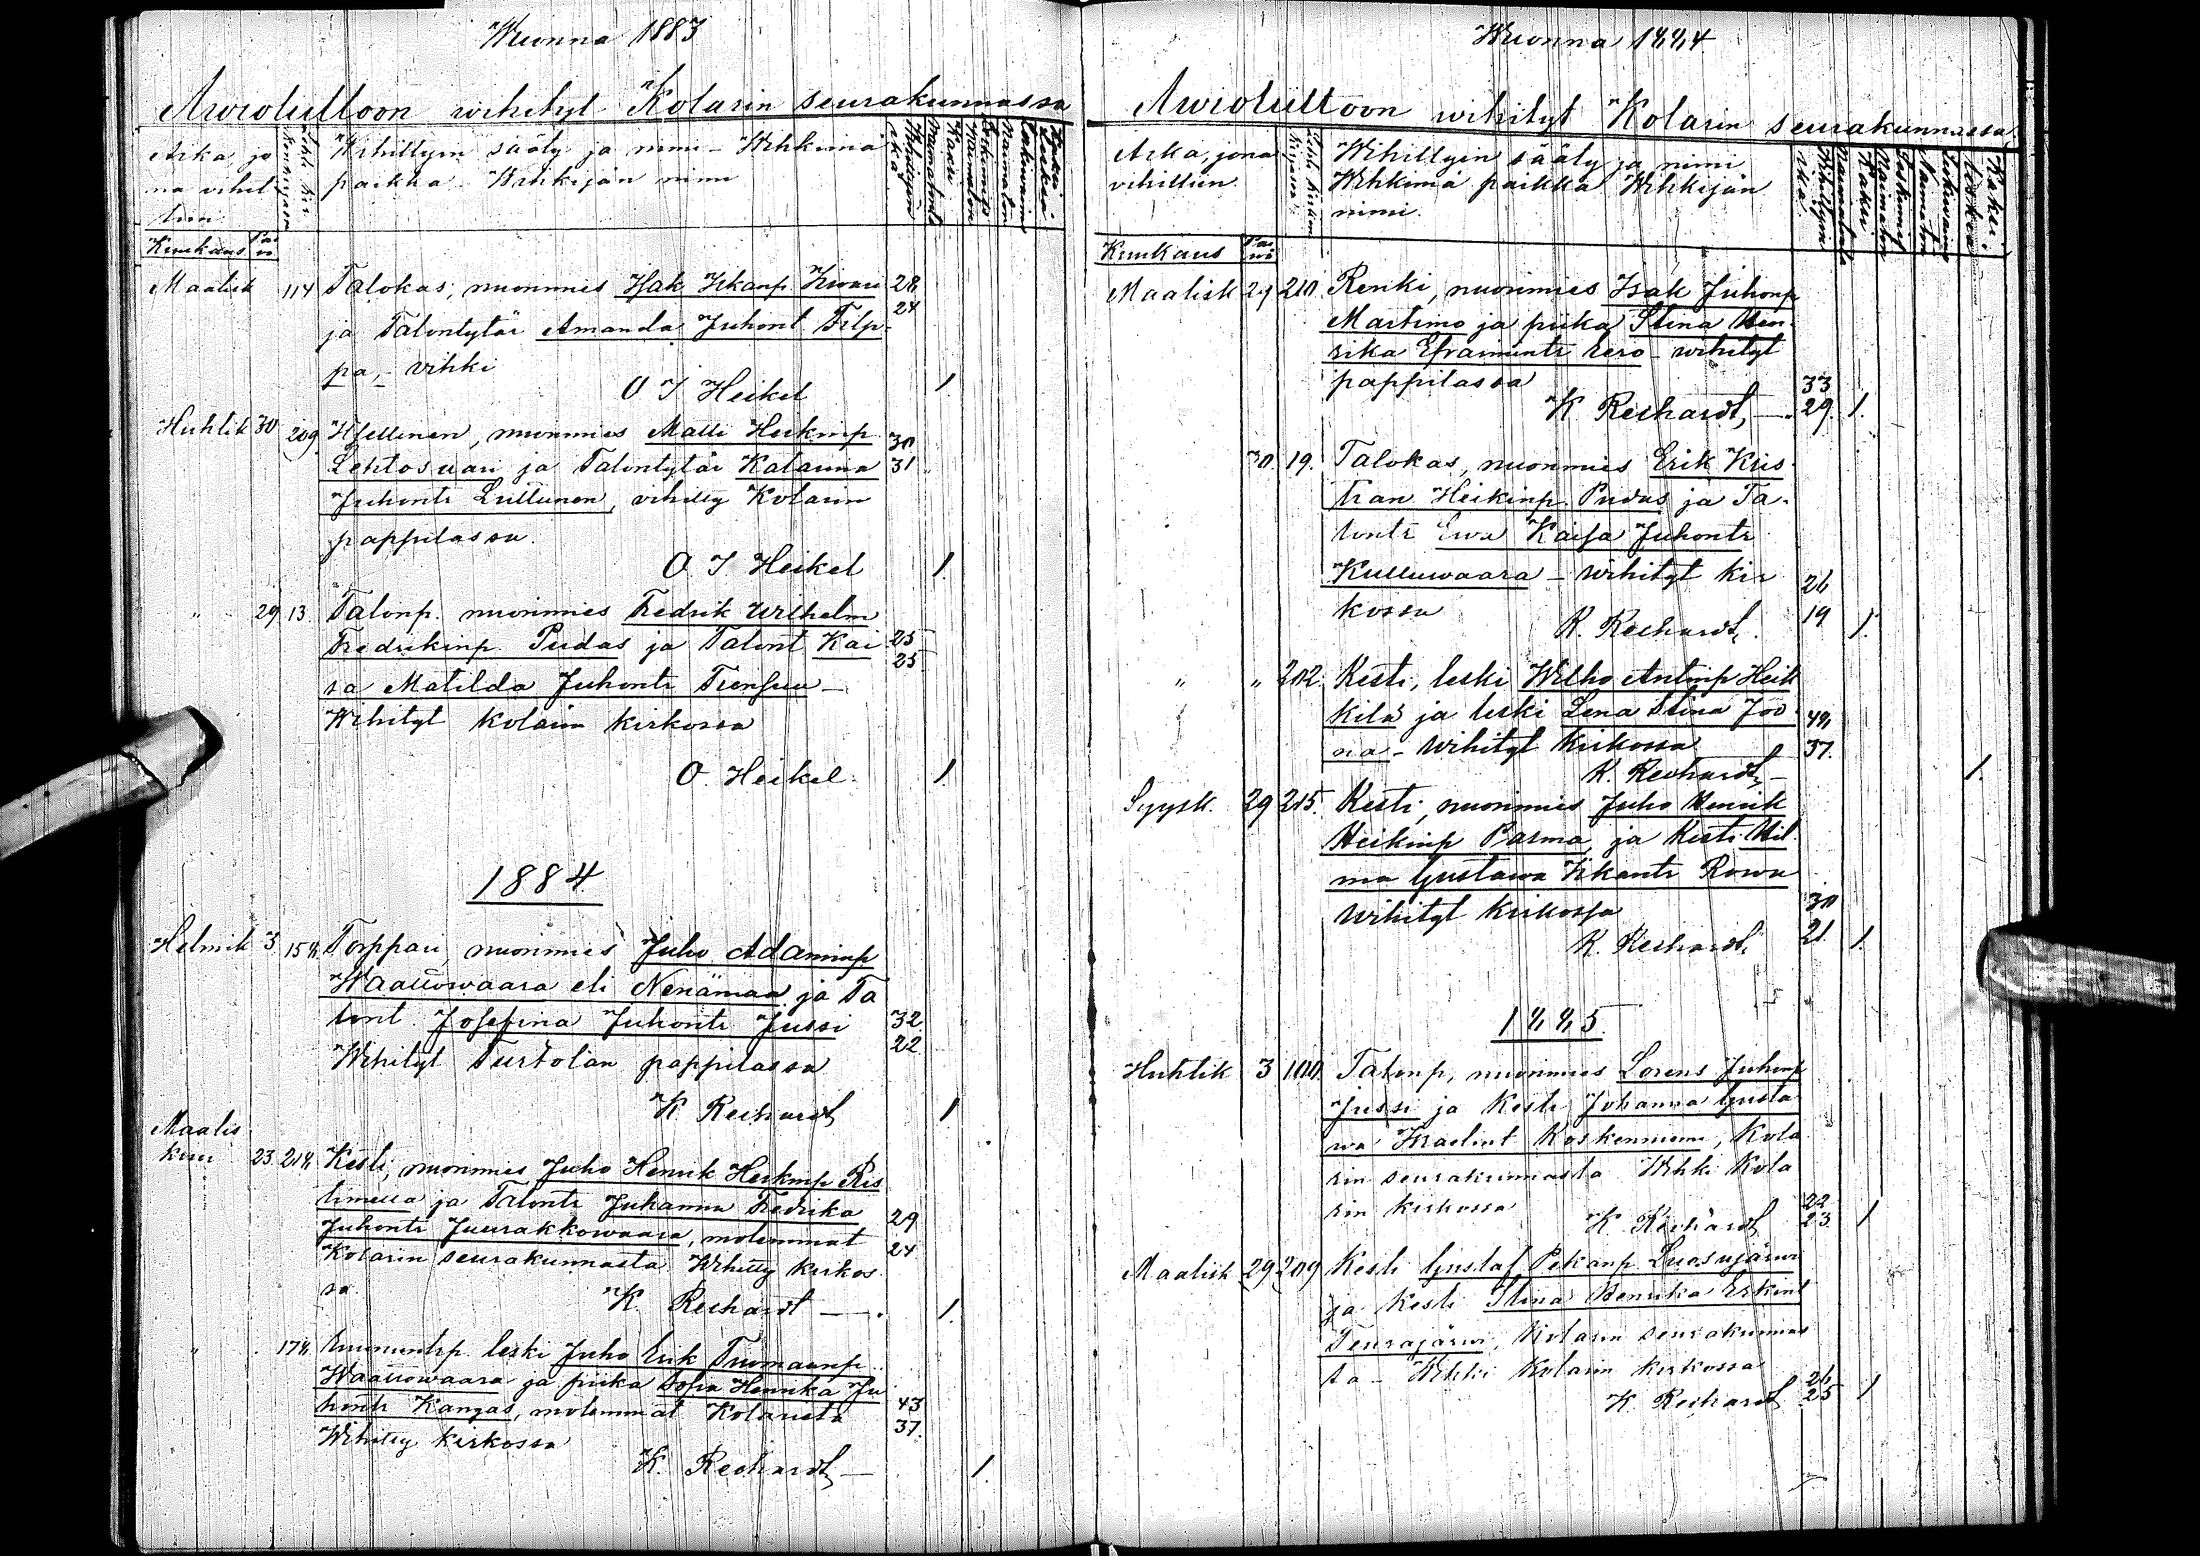 Wuonna 1883
Awioliittoon wihityt Kolarin seurakunnassa
Aika, jo
na vihit
tiin
Kuukaus
Wihittyin sääty ja nimi - Wihkimä
paikka - Wihkijän nimi
Maalisk 114 Talokas, nuorimies Isak Iskanp Kivari 28
24
ja Talontytär Amanda Juhont Filp-
pa, - vihki
O I Heikel 1.
Huhtik 30 209. Itsellinen, nuorimies Matti Heikinp 30
Lehtosaari ja Talontytär Katarina 31
Juhontr Luttunen, vihitty Kolarin
pappilassa.
O. I Heikel 1.
" 29 13. Talonp. nuorimies Fredrik Wilhelm
Fredrikinp. Pudas ja Talont Kai 25
25
sa Matilda Juhontr
Wihityt Kolarin kirkossa
O. Heikel. 1
1884
Helmik 3 158 Torppari, nuorimies Juho Adaminp
Waattowaara eli Nenämaa ja Ta
lont. Josefina Juhontr Jussi 32
22
Wihityt Turtolan pappilassa
K Rechardt 1
Maalis
kuu 23 218 Kesti, nuorimies Juho Henrik Heikinp Ris
timella ja Talontr Juhanna Fredrika 29
Juhontr Juurakkowaara, molemmat 24
Kolarin seurakunnasta Wihitty kirkos
sa.
K. Rechardt 1.
" 178 leski Juho Erik Tuomaanp
Waattowaara ja piika Sofia Henrika Ju 43
hontr Kangas, molemmat Kolarista 37.
Wihitty kirkossa
K. Rechardt 1.
Wuonna 1884
Awioliittoon wihityt Kolarin seurakunnassa
Aika, jona
vihittiin.
Kuukaus
Wihittyin sääty ja nimi
Wihkimä paikka Wihkijän
nimi.
Maalisk 29 210. Renki, nuorimies Isak Juhonp
Martimo ja piika Stina Hen-
rika Efraimintr Eero - wihityt
pappilassa 33
K Rechardt 29. 1.
30. 19. Talokas, nuorimies Erik Kris-
tian Heikinp. Pudas ja Ta-
lontr Ewa Kaisa Juhontr
Kulluwaara - Wihityt kir 26
kossa 19
K. Rechardt. 1.
" " 202. Kesti, leski Wilho Antinp Heik
kilä ja leski Lena Stina Joo 48
na - Wihityt kirkossa 37.
K. Rechardt 1.
Syysk. 29 215. Kesti, nuorimies Juho Henrik
Heikinp Parma, ja Kesti Hil
ma Gustawa Iskantr Rowa
Wihityt kirkossa 30
K. Rechardt. 21. 1.
1885.
Huhtik 3 100. Talonp, nuorimies Lorens Juhonp
Jussi ja Kesti Johanna Gusta
wa Israelint Koskenniemi, Kola
rin seurakunnasta Wihki Kola
rin kirkossa 22
K Rechardt 23 1
Maalisk 29 209 Kesti Gustaf Pekanp Luosujärwi
ja Kesti Stina Henrika Erkint
Teurajärwi, Kolarin seurakunnas
ta - Wihki Kolarin kirkossa 26
K Rechardt 25 1